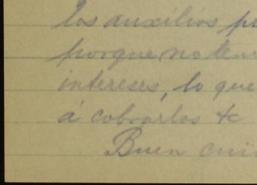 los auxilios
porque no
intereses, lo que
á cobrarlos &c
Buen